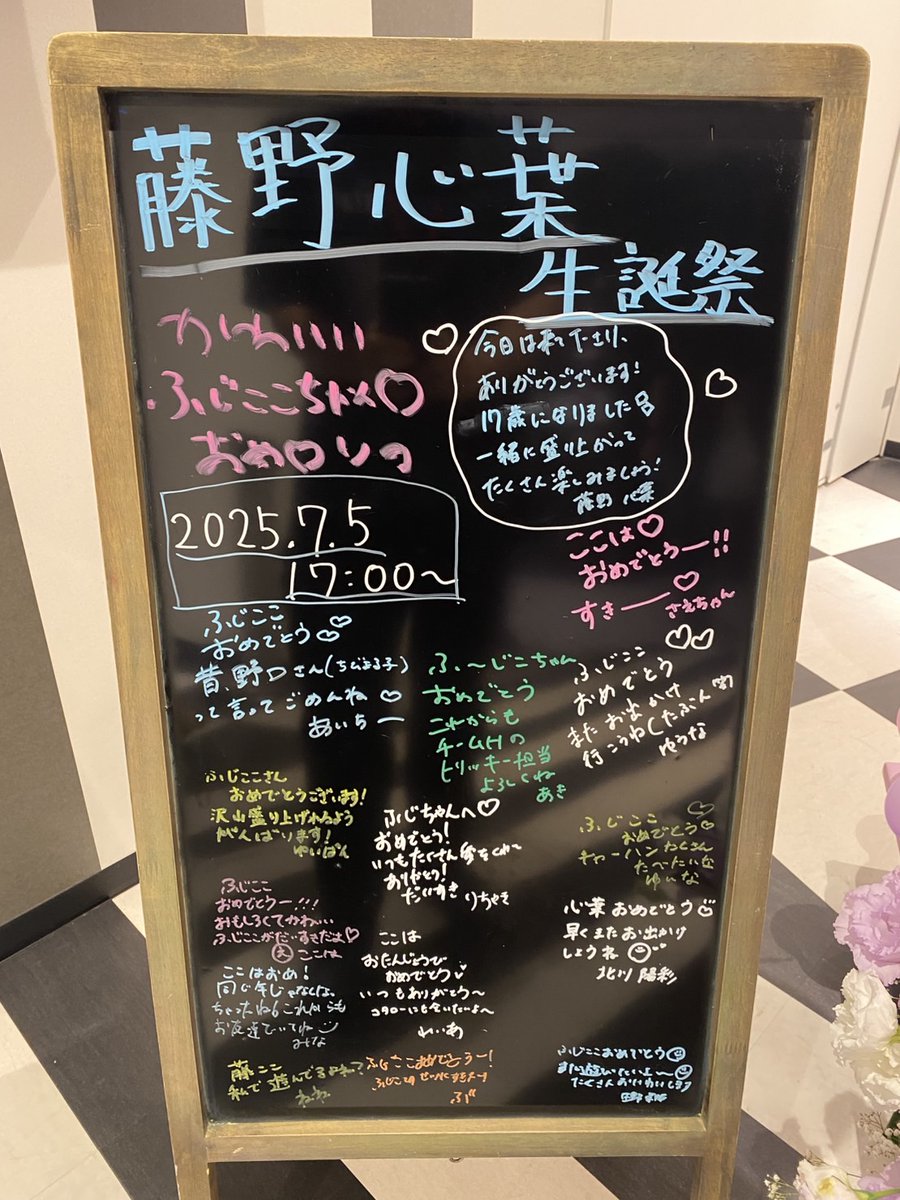 藤野心葉
生誕祭
かわいい
ふじここちゃん
おめ
今日は来て下さり、
ありがとうございます!
17歳になりました
一緒に盛り上がって
たくさん楽しみましょう!
藤野心葉
2025.7.5
17:00~
ここは♡
おめでとうー!!
すきー♡
さえちゃん
ふじここ
おめでとう♡
昔、野口さん(ちびまる子)
って言ってごめんね♡
あいちー
ふ〜じこちゃん
おめでとう
これからも
チームHの
トリッキー担当
よろしくね
あき
ふじここ
おめでとう
またおまかけ
行こうね(たぶん笑)
ゆうな
ふじここさん
おめでとうございます!
沢山盛り上げれるよう
がんばります!
ゆいぱん
ふじちゃんへ♡
おめでとう!
いつもたくさん
ありがとう!
だいすき りちゃき
ふじここ
おめでとう♡
チャーハンたくさん
たべたいな
ゆいな
ふじここ
おめでとうー!!!
おもしろくてかわいい
ふじここがだいすきだよ♡
ここは
ここは
おたんじょうび
おめでとう
いつもありがとう〜
コタローにも会いたいよ〜
心葉おめでとう
早くまたお出かけ
しようね
北川 陽彩
ここはおめ!
同じ年じゃなくな
ちゃったねこれからも
お友達でいてね
藤ここ
私で遊んでるよね?
ねね
ふじここおめでとうー!
ふじここおめでとう
また遊びたいよ〜
たくさんお祝いしよう